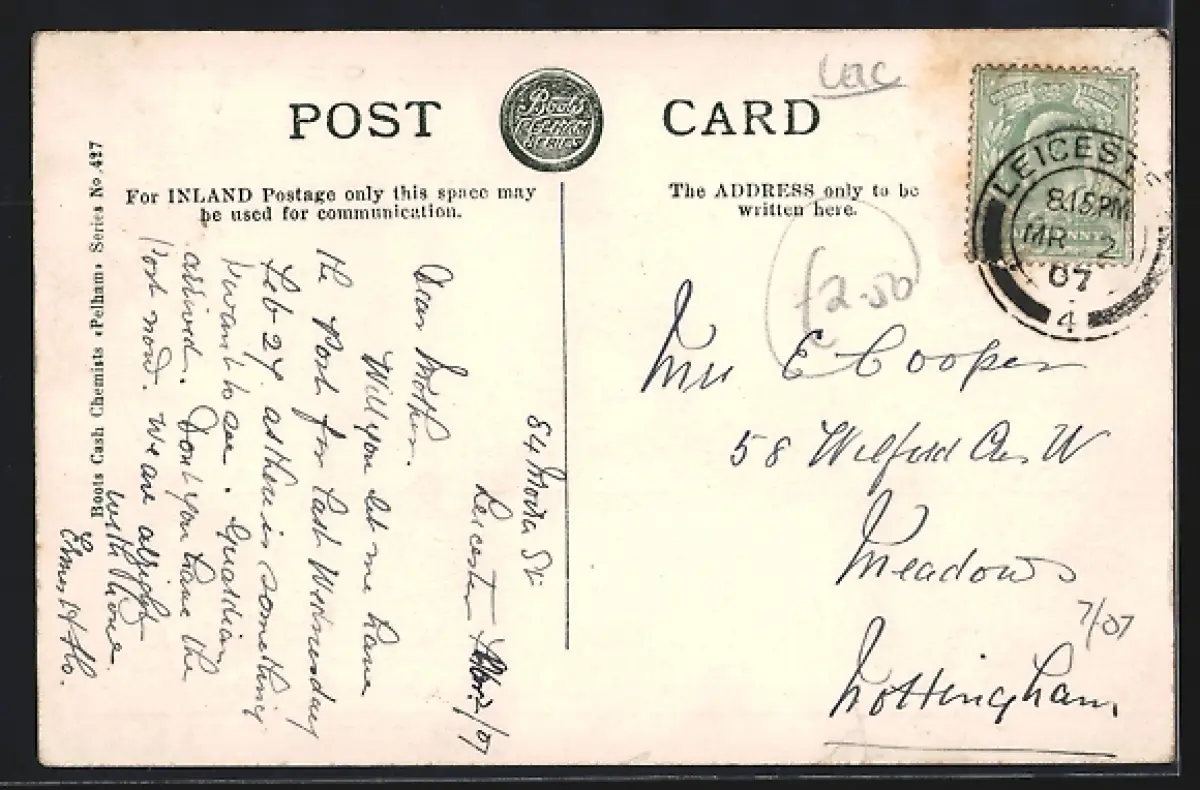 POST CARD
Boots
PELHAM
SERIES
For INLAND Postage only this space may
be used for communication.
The ADDRESS only to be
written here.
Boots Cash Chemists "Pelham" Series No. 427
LEICEST
8.15 PM
MR 2
07
4
£2.50
84 Moira St
Leicester Mar 2/07
Dear Mother.
Will you let me have
the Post for last Wednesday
Feb 27 as there is something
I want to see. Guardian
arrived. Dont you have the
Post now. We are alright
with love.
Mrs E Cooper
58 Wilford Cres W
Meadows
Nottingham
7/07